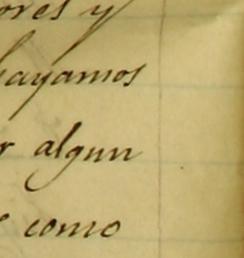 ores y
hayamos
r algun
como